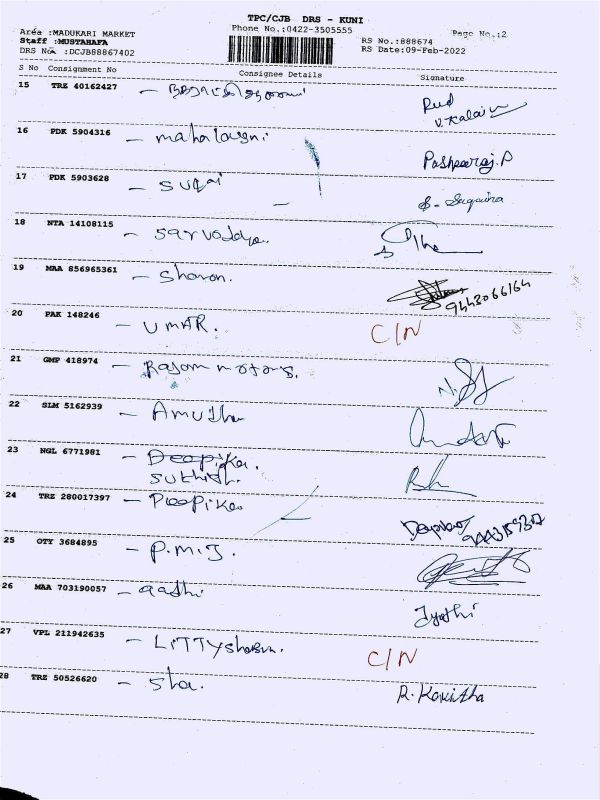 TPC/CJB DRS - KUNI
Aréa :MADUKARI MARKET
Phone No.:0422-3505555
Page No.:2
Staff :MUSTAHAFA
RS No.:888674
DRS No :DCJB88867402
RS Date:09-Feb-2022
S No Consignment No Consignee Details Signature
15 TRZ 40162427 -
V. Kalai
16 PDK 5904316 - mahalaxmi Pashparaj.P
17 PDK 5903628 - sugai S. Suguina
18 NTA 14108115 - sarvodaya.
19 MAA 856965361 - Sharon.
9443066164
20 PAK 148246 - UMAR. C/N
21 GMP 418974 - Rajam motors.
22 SLM 5162939 - Amudha
23 NGL 6771981 - Deepika.
Suthish.
24 TRZ 280017397 - Deepika
25 OTY 3684895 - P.M.J.
26 MAA 703190057 - aadhi Jyothi
27 VPL 211942635 - LiTTYsharon. C/N
28 TRZ 50526620 - Sha. R. Kavitha